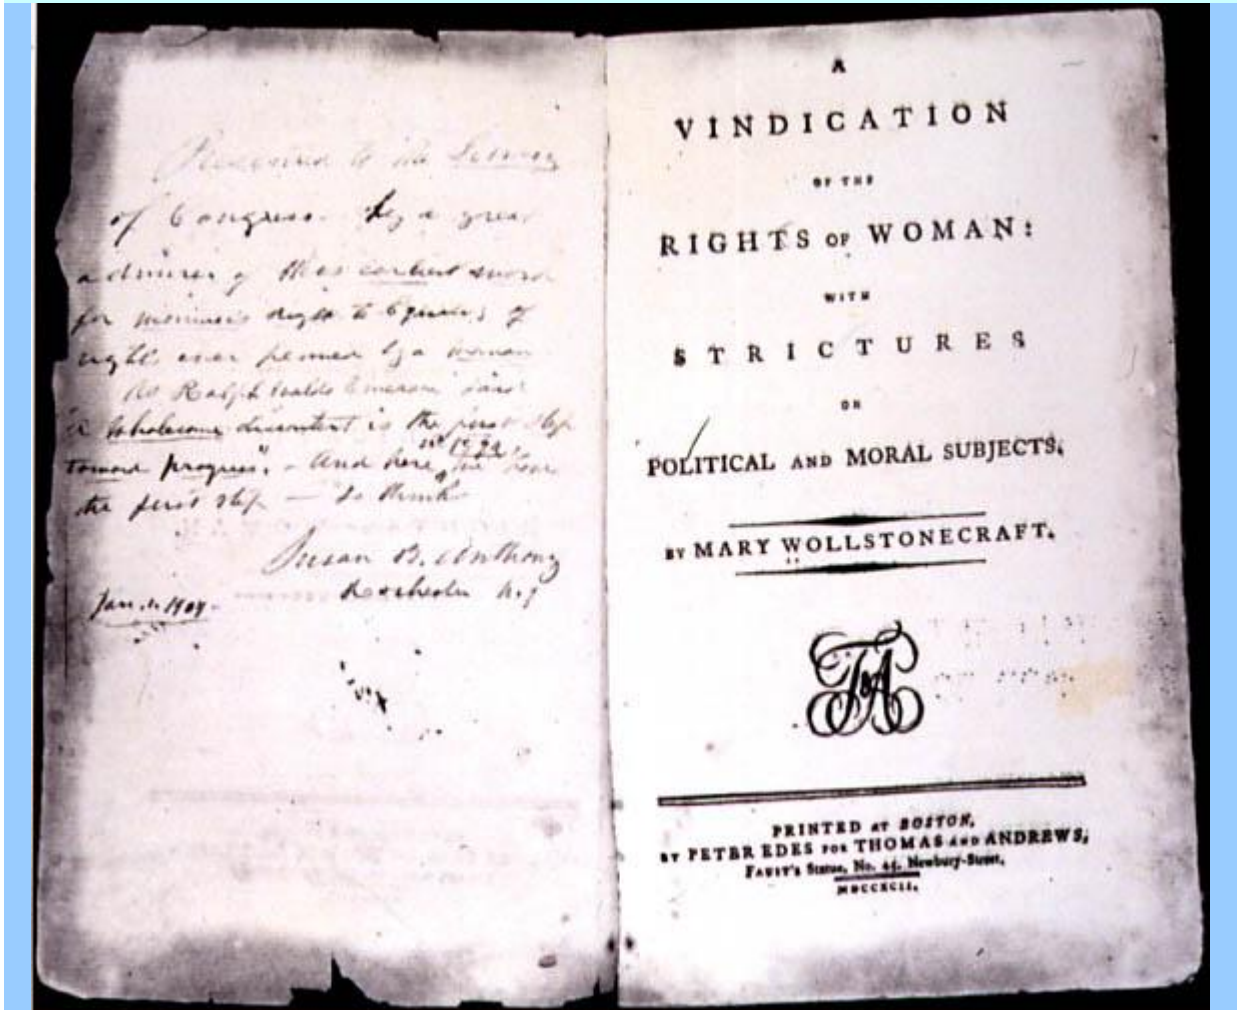 Presented to the Library
of Congress by a great
admirer of this earliest work
for woman's right to Equality of
rights ever penned by a woman
As Ralph Waldo Emerson said
"A wholesome discontent is the first step
toward progress". - And here, in 1892, we have
the first step — so thinks
Susan B. Anthony
Rochester N.Y
Jan. 1. 1904.
A
VINDICATION
OF THE
RIGHTS OF WOMAN:
WITH
STRICTURES
ON
POLITICAL AND MORAL SUBJECTS.
BY MARY WOLLSTONECRAFT.
T&A
PRINTED AT BOSTON,
BY PETER EDES FOR THOMAS AND ANDREWS,
FAUST'S Statue, No. 45, Newbury-Street,
MDCCXCII.